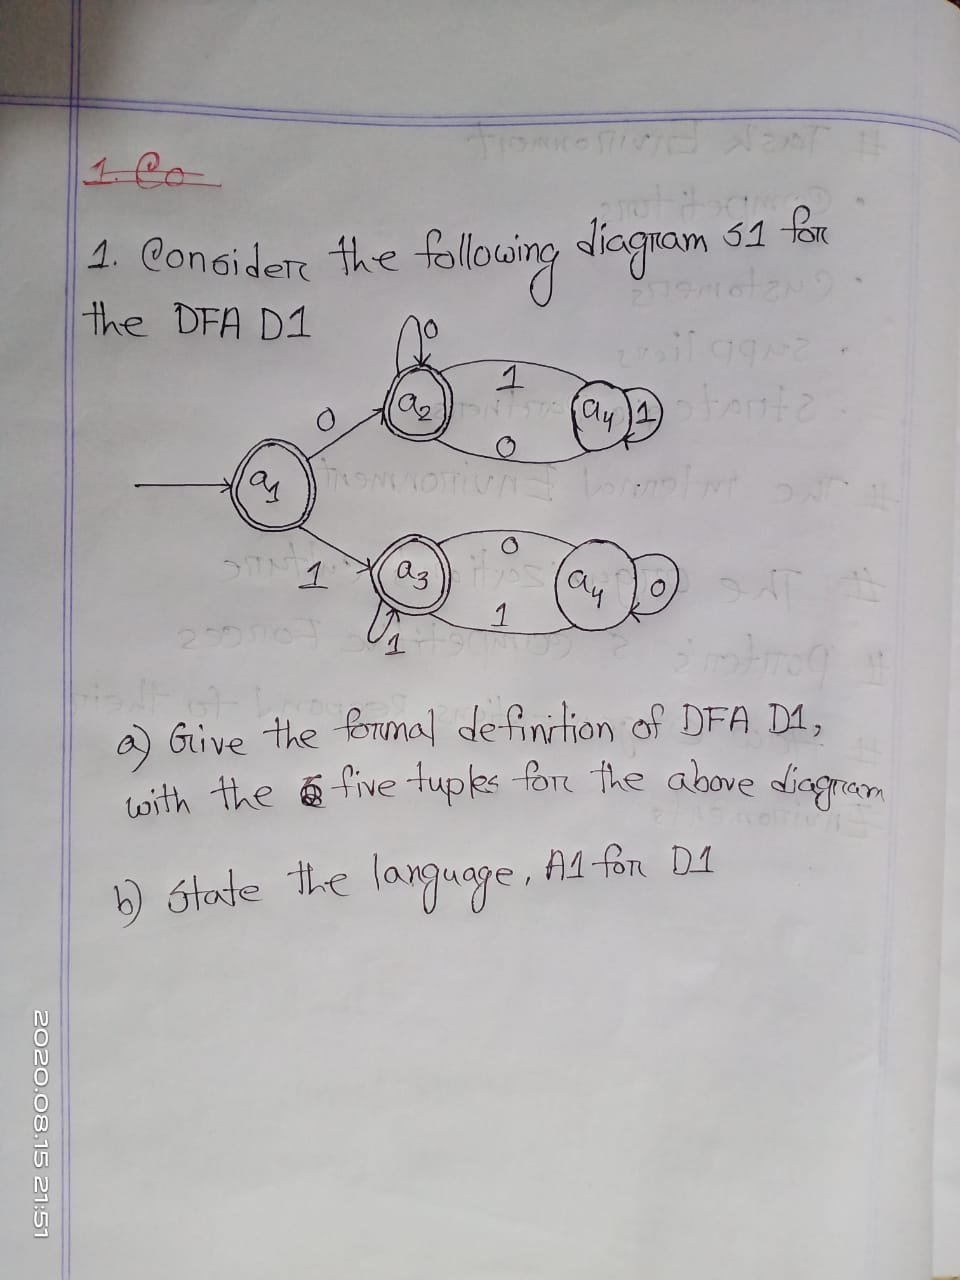 1. Co
1. Consider the following diagram S1 for
the DFA D1
0
0
a2
1
a4
1
0
a1
1
a3
0
a4
0
1
1
a) Give the formal definition of DFA D1,
with the five tuples for the above diagram
b) State the language, A1 for D1
2020.08.15 21:51